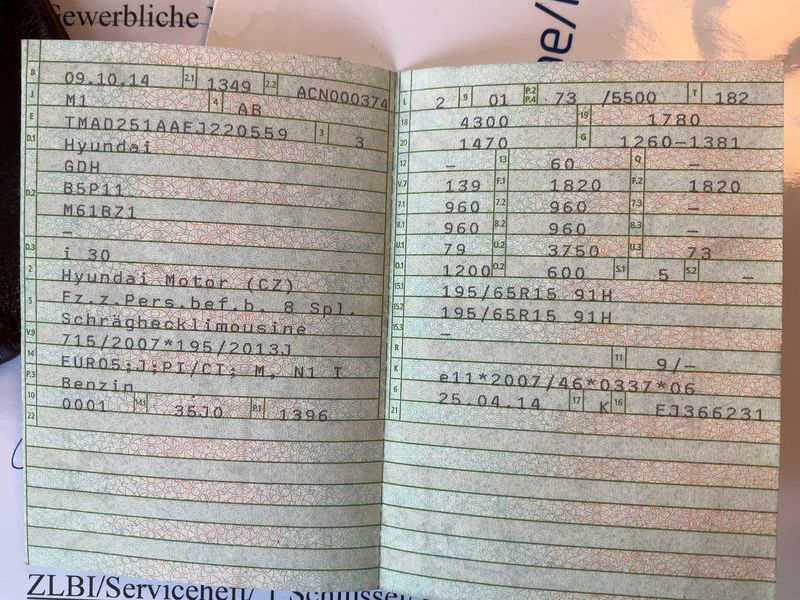 Gewerbliche
B 09.10.14 2.1 1349 2.2 ACN000374
J M1 4 AB
E TMAD251AAEJ220559 3 3
D.1 Hyundai
GDH
D.2 B5P11
M61BZ1
–
D.3 i 30
2 Hyundai Motor (CZ)
5 Fz.z.Pers.bef.b. 8 Spl.
Schräghecklimousine
V.9 715/2007*195/2013J
14 EURO5;J;PI/CI; M, N1 I
P.3 Benzin
10 0001 14.1 35J0 P.1 1396
22
L 2 9 01 P.2 P.4 73 /5500 T 182
18 4300 19 1780
20 1470 G 1260–1381
12 – 13 60 Q –
V.7 139 F.1 1820 F.2 1820
7.1 960 7.2 960 7.3 –
8.1 960 8.2 960 8.3 –
U.1 79 U.2 3750 U.3 73
O.1 1200 O.2 600 S.1 5 S.2 –
15.1 195/65R15 91H
15.2 195/65R15 91H
15.3 –
R 11 9/–
K e11*2007/46*0337*06
6 25.04.14 17 K 16 EJ366231
21
ZLBI/Serviceheft/ 1 Schlüssel/